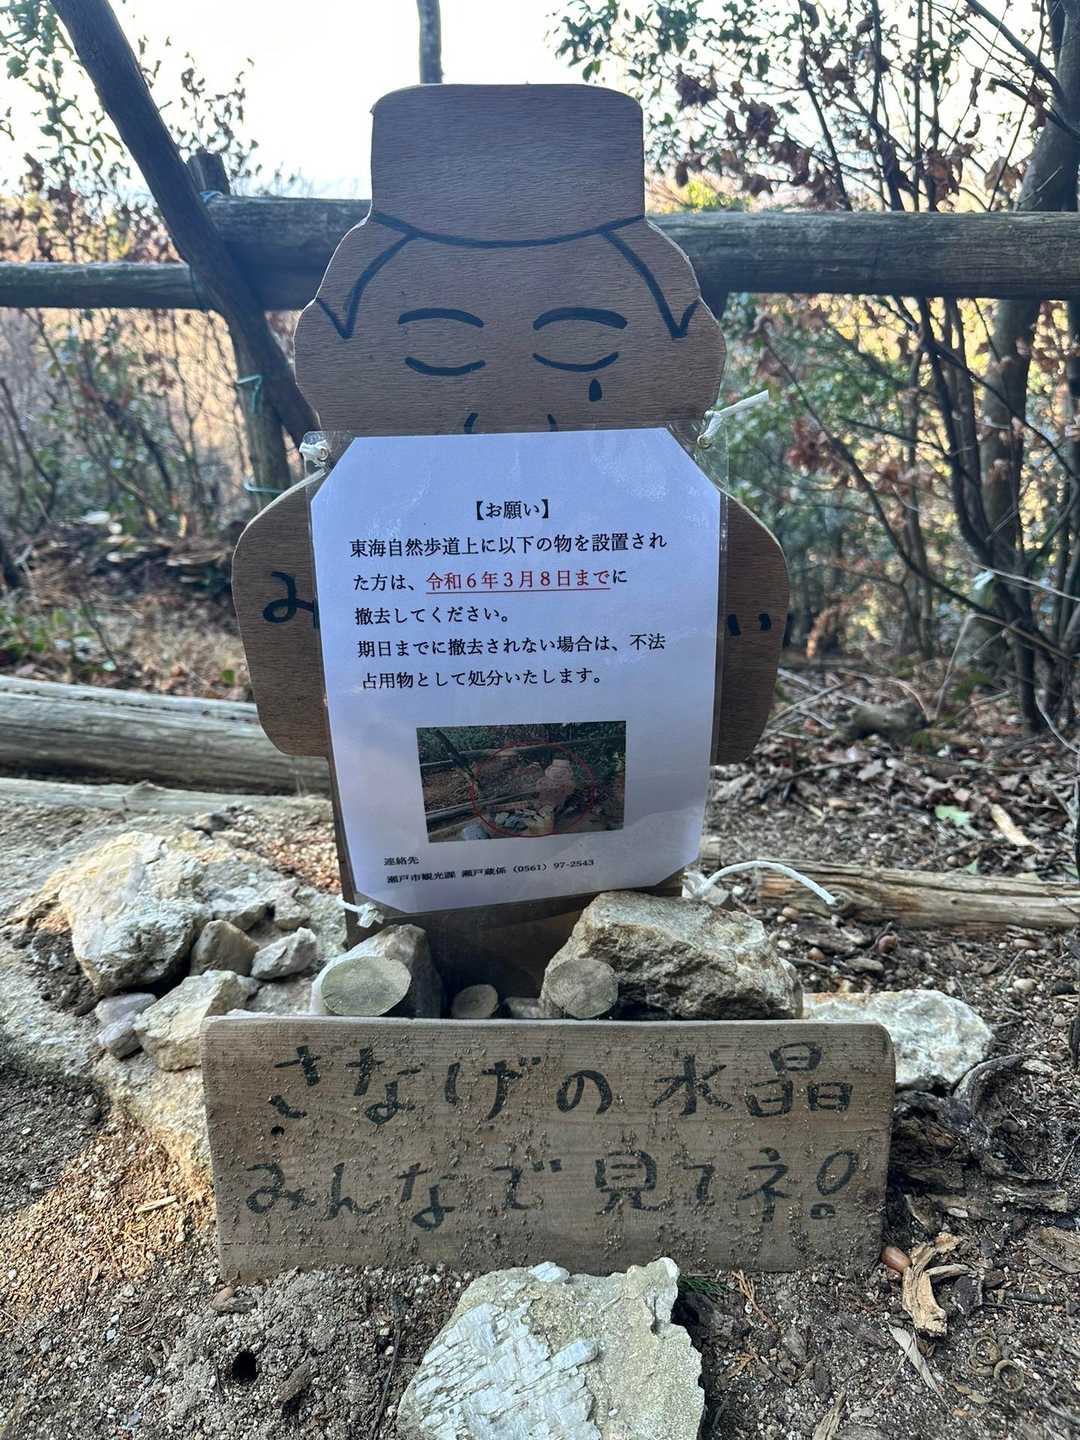 【お願い】
東海自然歩道上に以下の物を設置され
た方は、令和６年３月８日までに
撤去してください。
期日までに撤去されない場合は、不法
占用物として処分いたします。
連絡先
瀬戸市観光課 瀬戸蔵係（0561）97-2543
み
い
さなげの水晶
みんなで見てネ!